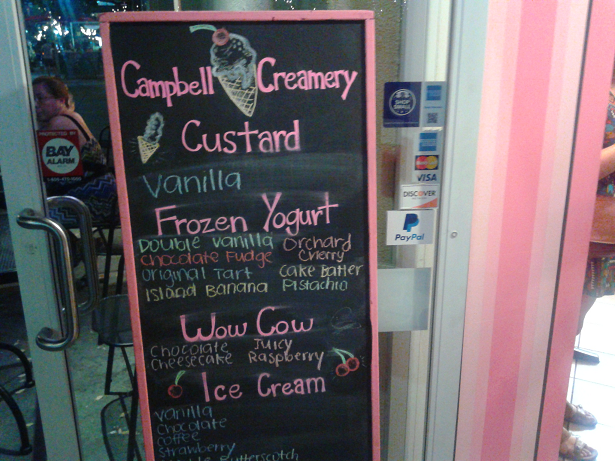 Campbell Creamery
Custard
Vanilla
Frozen Yogurt
Double Vanilla
Chocolate Fudge
Original Tart
Island Banana
Orchard
Cherry
Cake Batter
Pistachio
Wow Cow
Chocolate
Cheesecake
Juicy
Raspberry
Ice Cream
Vanilla
Chocolate
Coffee
Strawberry
Butterscotch
PROTECTED BY
BAY
ALARM
SHOP
SMALL
MasterCard
VISA
DISCOVER
PayPal